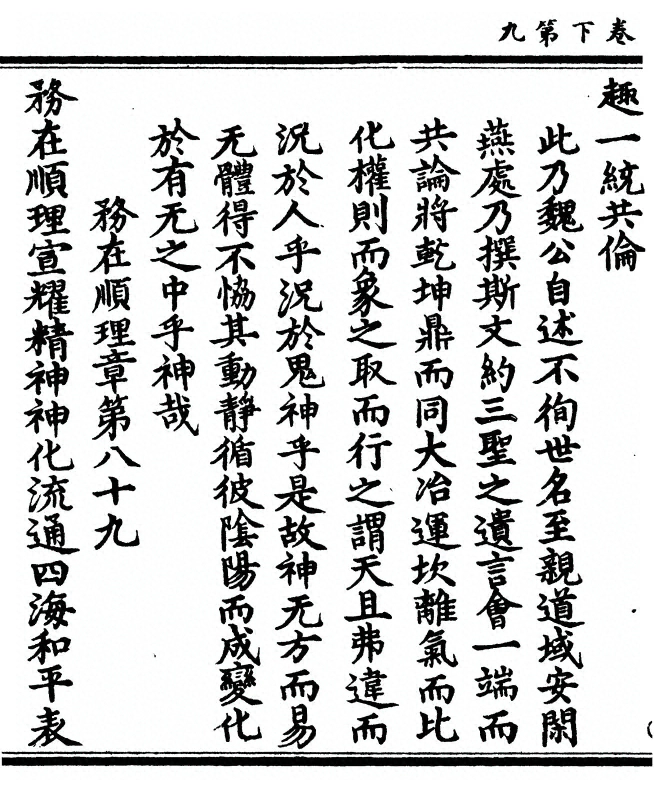 卷下第九
趣一統共倫
此乃魏公自述不徇世名至親道域安閑
燕處乃撰斯文約三聖之遺言會一端而
共論將乾坤鼎而同大冶運坎離氣而比
化權則而象之取而行之謂天且弗違而
況於人乎況於鬼神乎是故神无方而易
无體得不恊其動靜循彼陰陽而成變化
於有无之中乎神哉
務在順理章第八十九
務在順理宣耀精神神化流通四海和平表